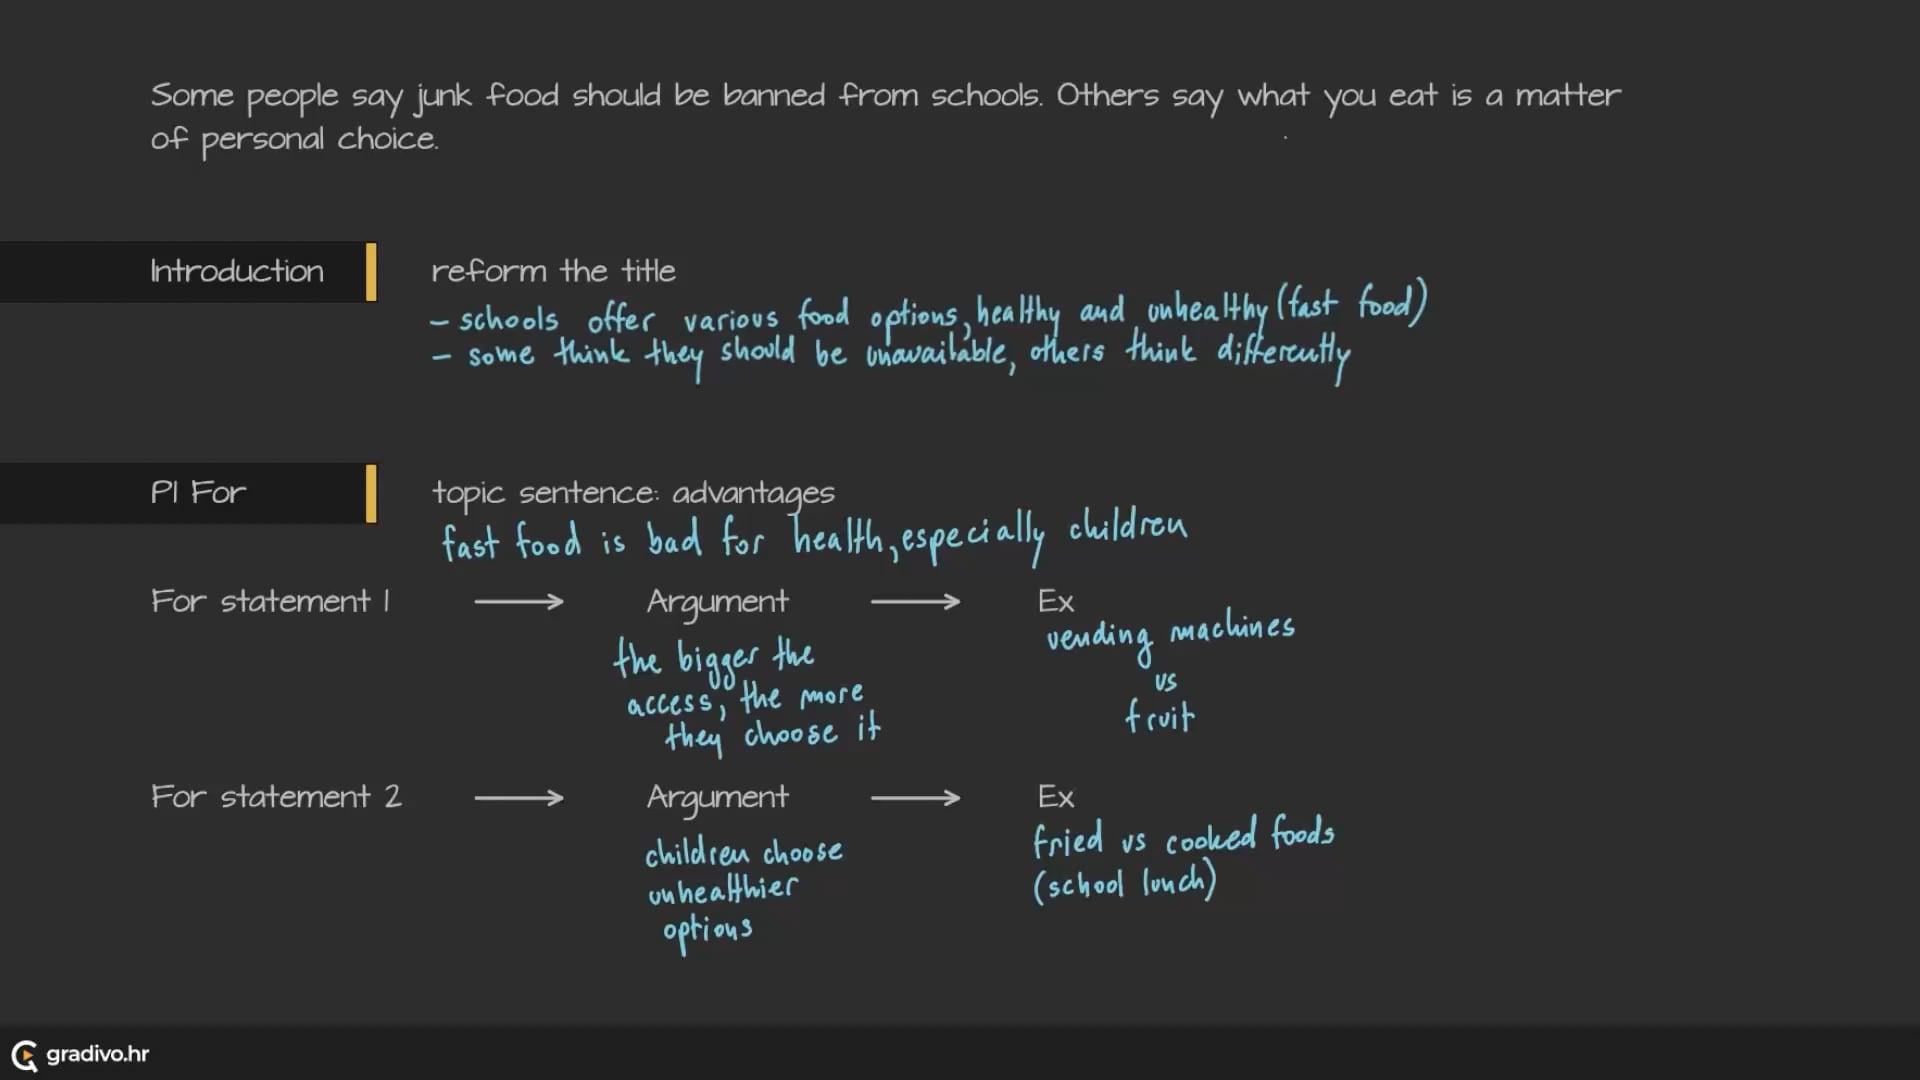 Some people say junk food should be banned from schools. Others say what you eat is a matter
of personal choice.
Introduction
reform the title
- schools offer various food options, healthy and unhealthy (fast food)
- some think they should be unavailable, others think differently
P1 For
topic sentence: advantages
fast food is bad for health, especially children
For statement 1 → Argument → Ex
the bigger the
access, the more
they choose it
vending machines
vs
fruit
For statement 2 → Argument → Ex
children choose
unhealthier
options
fried vs cooked foods
(school lunch)
gradivo.hr